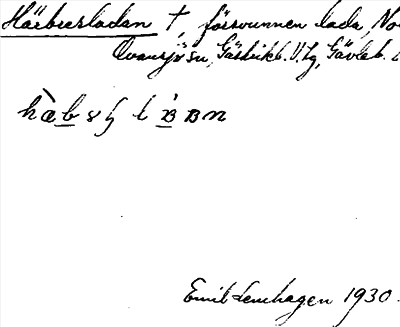 Härbresladan †, försvunnen lada, No
Ovansjö sn, Gästrikl. V. tg, Gävleb. l
Emil Lenhagen 1930.